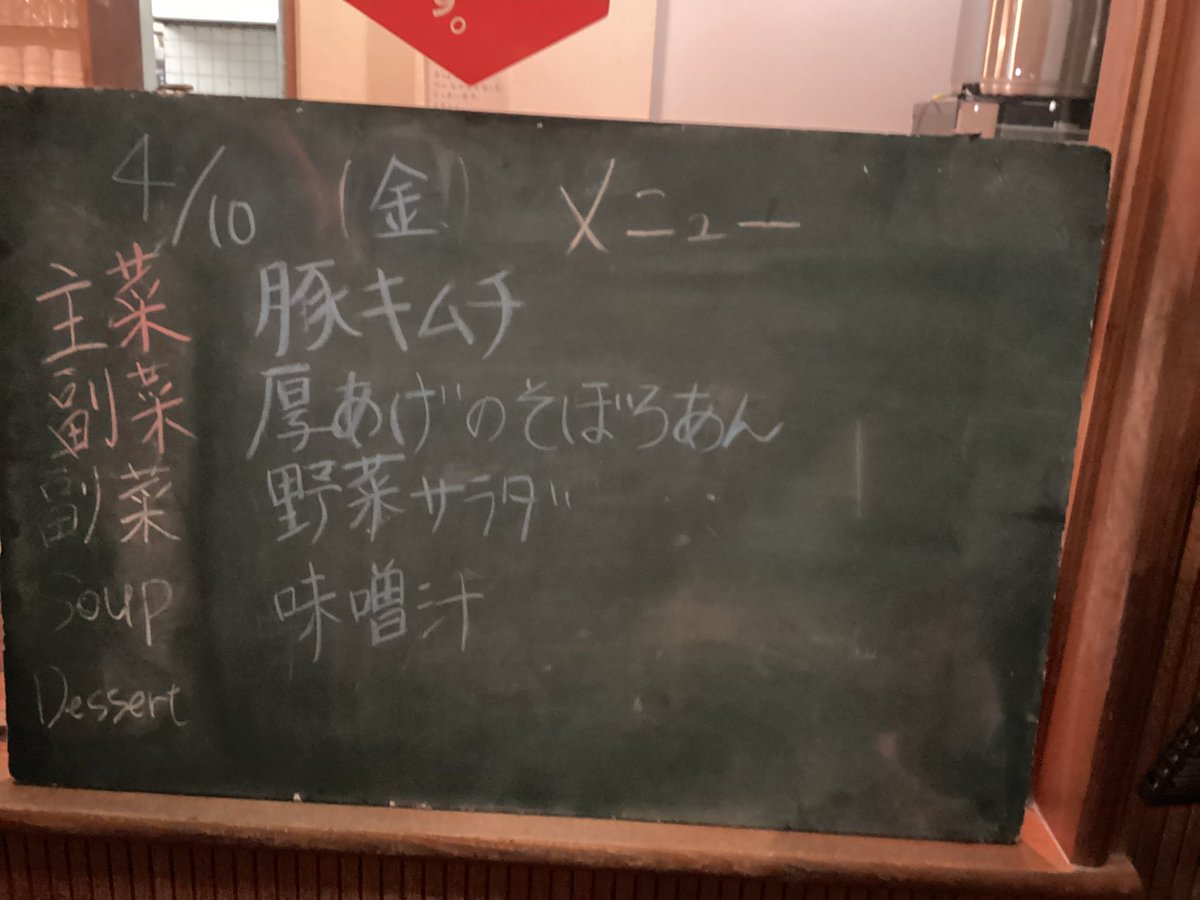 す。
4/10 (金) メニュー
主菜 豚キムチ
副菜 厚あげのそぼろあん
副菜 野菜サラダ
Soup 味噌汁
Dessert